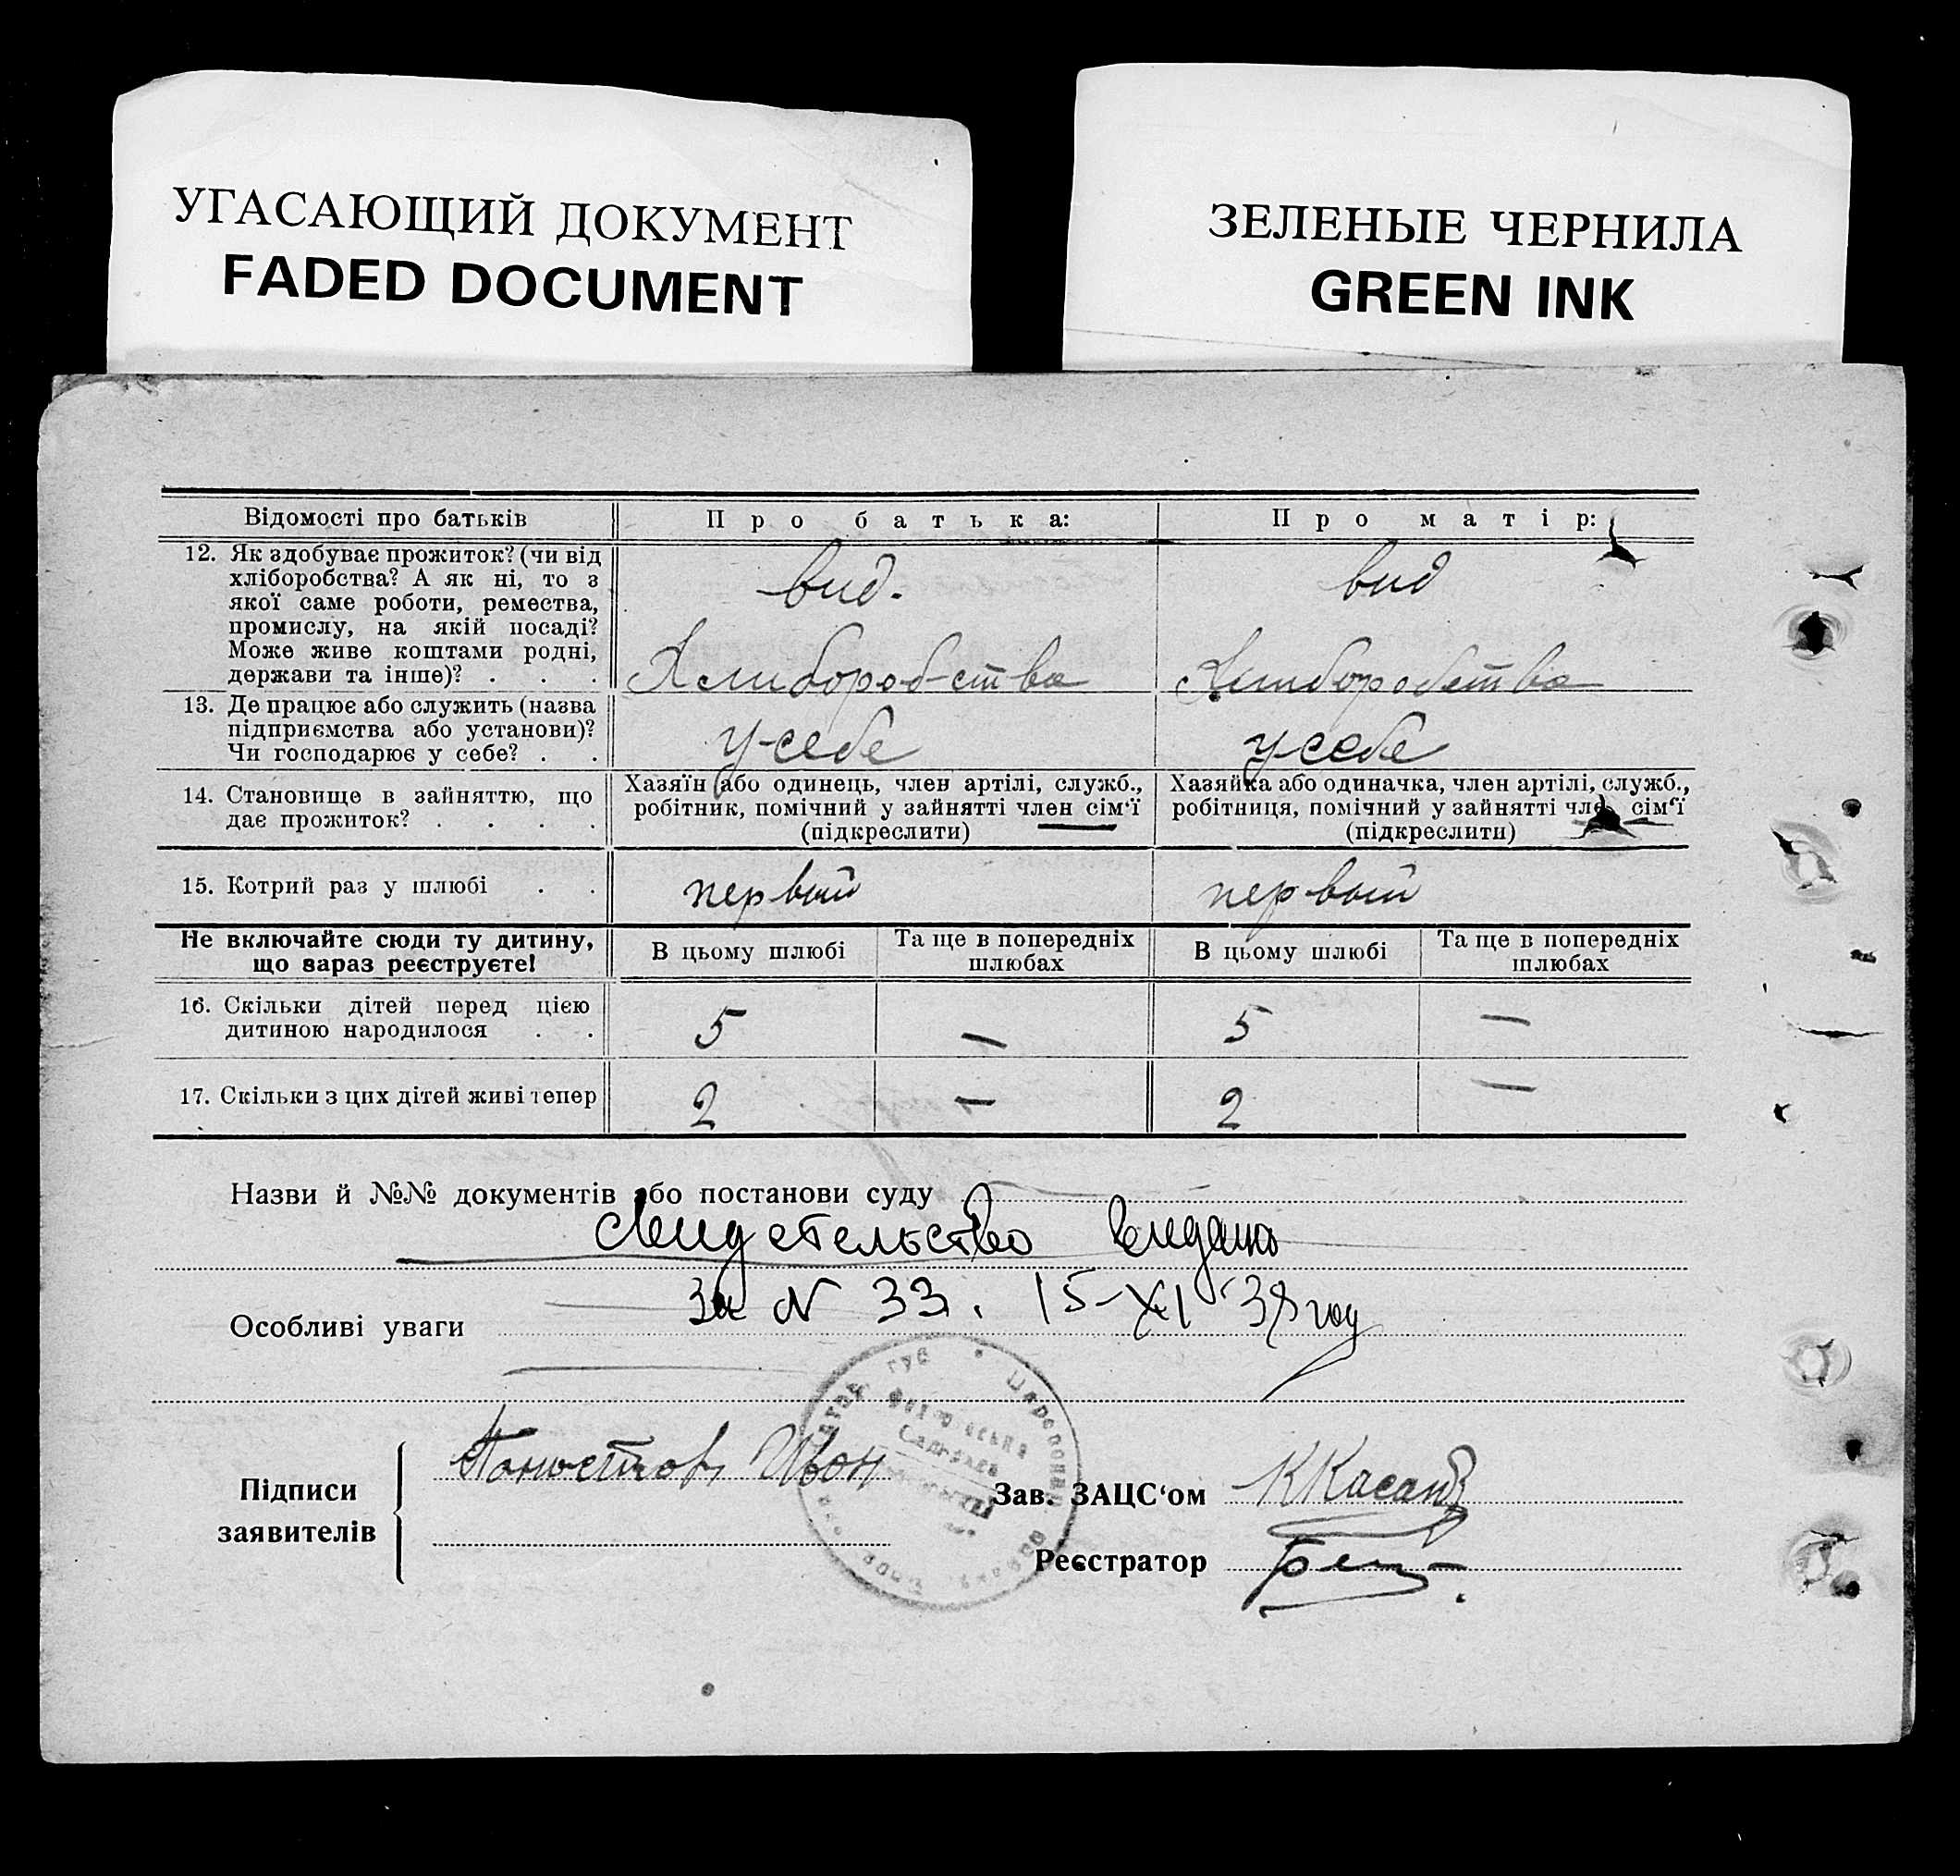 УГАСАЮЩИЙ ДОКУМЕНТ
FADED DOCUMENT
ЗЕЛЕНЫЕ ЧЕРНИЛА
GREEN INK
Відомості про батьків
Про батька:
Про матір:
12. Як здобуває прожиток? (чи від
хліборобства? А як ні, то з
якої саме роботи, ремества,
промислу, на якій посаді?
Може живе коштами родні,
держави та інше)? . . .
вид.
Хлиборобства
вид
Хлиборобства
13. Де працює або служить (назва
підприємства або установи)?
Чи господарює у себе? . .
у себе
у себе
14. Становище в зайняттю, що
дає прожиток? . . . .
Хазяїн або одинець, член артілі, служб.,
робітник, помічний у зайнятті член сім'ї
(підкреслити)
Хазяйка або одиначка, член артілі, служб.,
робітниця, помічний у зайнятті член сім'ї
(підкреслити)
15. Котрий раз у шлюбі . .
первый
первый
Не включайте сюди ту дитину,
що зараз реєструєте!
В цьому шлюбі
Та ще в попередніх
шлюбах
В цьому шлюбі
Та ще в попередніх
шлюбах
16. Скільки дітей перед цією
дитиною народилося . .
5
—
5
—
17. Скільки з цих дітей живі тепер
2
—
2
—
Назви й №№ документів або постанови суду
Свидетельство видано
За N 33. 15-XI 38 год
Особливі уваги
Підписи
заявителів
Иван
Зав. ЗАЦС'ом
Реєстратор